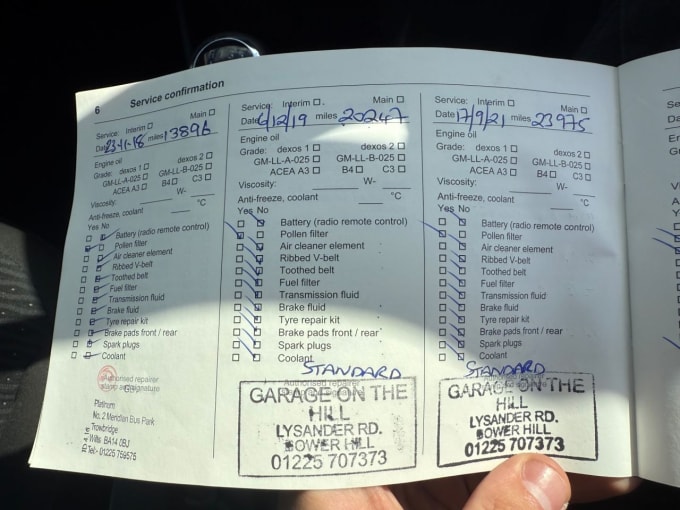 6 Service confirmation
Service: Interim □ Main □
Date 23-11-18 miles 13896
Engine oil
Grade: dexos 1 □ dexos 2 □
GM-LL-A-025 □ GM-LL-B-025 □
ACEA A3 □ B4 □ C3 □
Viscosity: W-
Anti-freeze, coolant °C
Yes No
Battery (radio remote control)
Pollen filter
Air cleaner element
Ribbed V-belt
Toothed belt
Fuel filter
Transmission fluid
Brake fluid
Tyre repair kit
Brake pads front / rear
Spark plugs
Coolant
Authorised repairer
stamp and signature
Platinum
No. 2 Meridian Bus Park
Trowbridge
Wilts BA14 0BJ
Tel:- 01225 759575
Service: Interim □ Main □
Date 6/12/19 miles 20247
Engine oil
Grade: dexos 1 □ dexos 2 □
GM-LL-A-025 □ GM-LL-B-025 □
ACEA A3 □ B4 □ C3 □
Viscosity: W-
Anti-freeze, coolant °C
Yes No
Battery (radio remote control)
Pollen filter
Air cleaner element
Ribbed V-belt
Toothed belt
Fuel filter
Transmission fluid
Brake fluid
Tyre repair kit
Brake pads front / rear
Spark plugs
Coolant
STANDARD
Authorised repairer
GARAGE ON THE
HILL
LYSANDER RD.
BOWER HILL
01225 707373
Service: Interim □ Main □
Date 17/9/21 miles 23975
Engine oil
Grade: dexos 1 □ dexos 2 □
GM-LL-A-025 □ GM-LL-B-025 □
ACEA A3 □ B4 □ C3 □
Viscosity: W-
Anti-freeze, coolant °C
Yes No
Battery (radio remote control)
Pollen filter
Air cleaner element
Ribbed V-belt
Toothed belt
Fuel filter
Transmission fluid
Brake fluid
Tyre repair kit
Brake pads front / rear
Spark plugs
Coolant
STANDARD
GARAGE ON THE
HILL
LYSANDER RD.
BOWER HILL
01225 707373